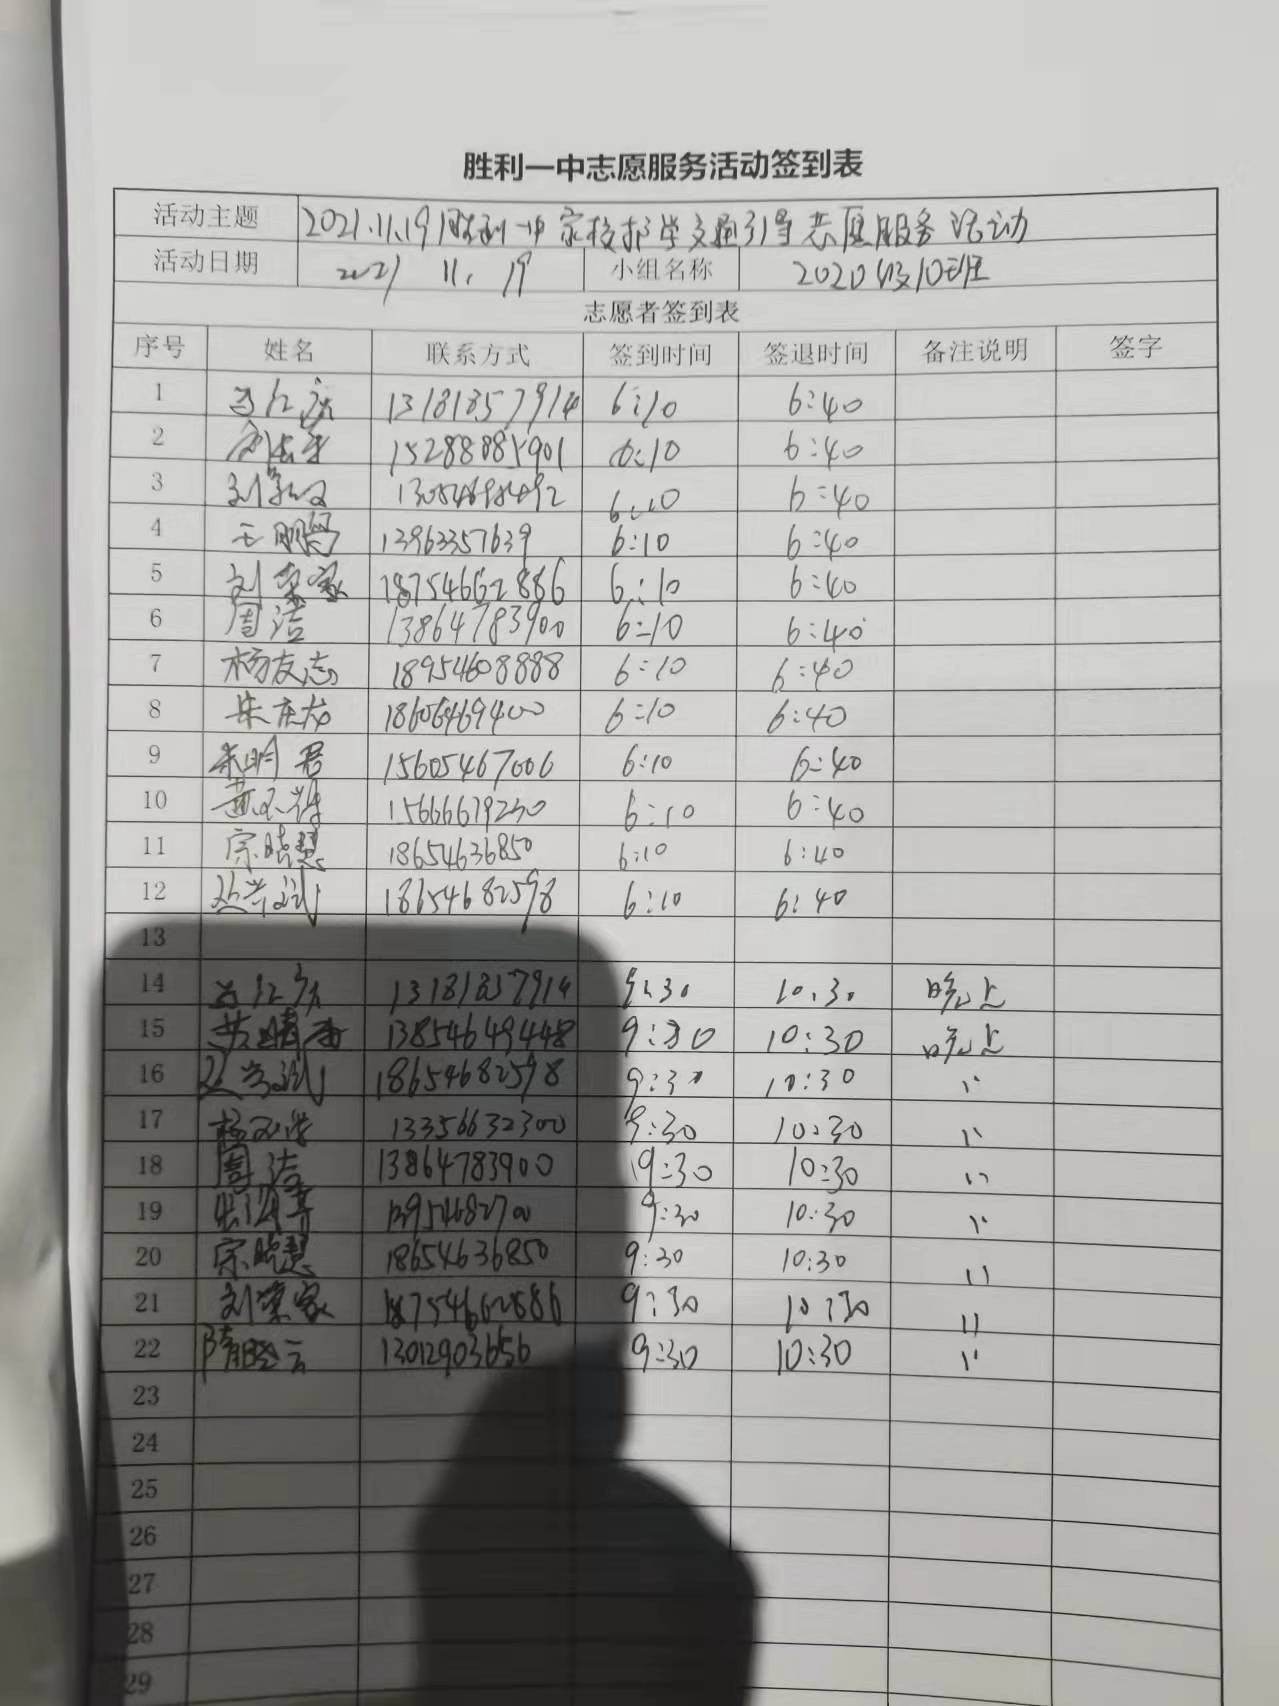 胜利一中志愿服务活动签到表
活动主题 2021.11.19胜利一中家校护学交通引导志愿服务活动
活动日期 2021 11. 19 小组名称 2020级10班
志愿者签到表
序号 姓名 联系方式 签到时间 签退时间 备注说明 签字
1 13181857914 6:10 6:40
2 15288885901 6:10 6:40
3 6:10 6:40
4 王鹏 13963357639 6:10 6:40
5 刘荣家 18754662886 6:10 6:40
6 周洁 13864783900 6:10 6:40
7 杨友志 18954608888 6:10 6:40
8 朱庆龙 18606469400 6:10 6:40
9 朱明君 15605467006 6:10 6:40
10 15666679230 6:10 6:40
11 宗晓慧 18654636850 6:10 6:40
12 赵兰斌 18654682598 6:10 6:40
13
14 13181857914 9:30 10:30 晚上
15 13854649448 9:30 10:30 晚上
16 赵兰斌 18654682598 9:30 10:30 〃
17 13356632300 9:30 10:30 〃
18 周洁 13864783900 9:30 10:30 〃
19 13954682700 9:30 10:30 〃
20 宗晓慧 18654636850 9:30 10:30 〃
21 刘荣家 18754662886 9:30 10:30 〃
22 隋晓云 13012903656 9:30 10:30 〃
23
24
25
26
27
28
29